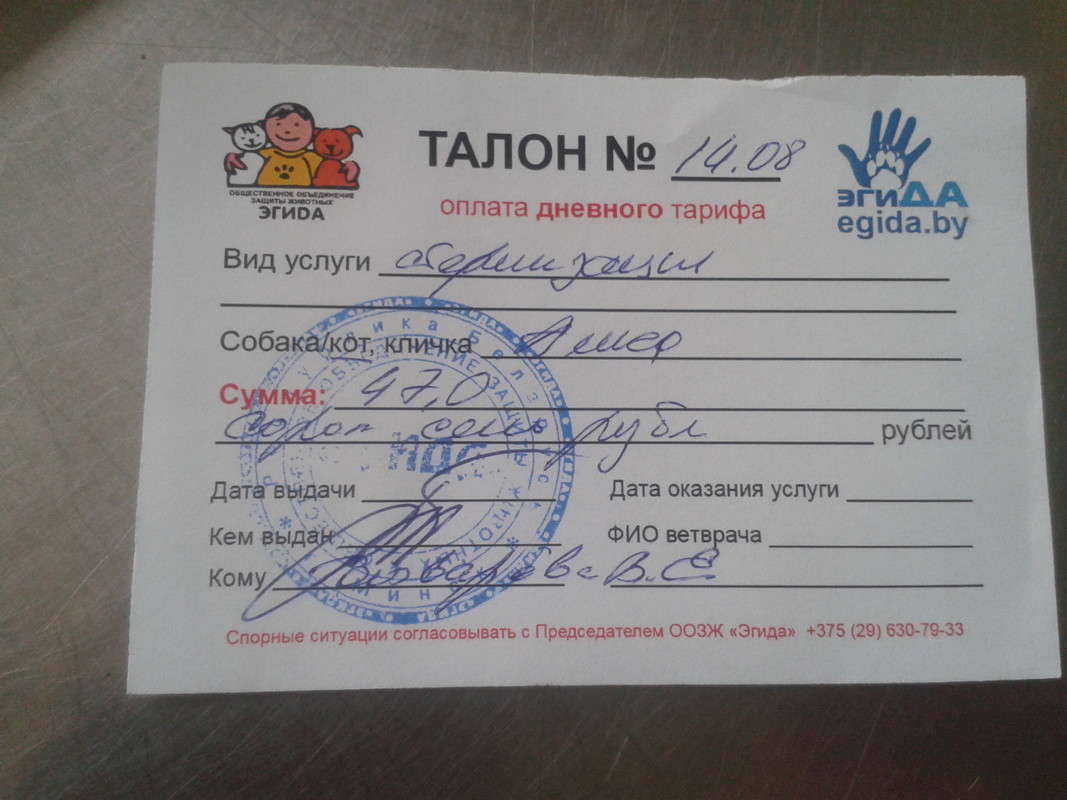 ОБЩЕСТВЕННОЕ ОБЪЕДИНЕНИЕ
ЗАЩИТЫ ЖИВОТНЫХ
ЭГИDА
ТАЛОН № 14.08
оплата дневного тарифа
эгиДА
egida.by
Вид услуги стерилизация
Собака/кот, кличка
Сумма: 47,0
сорок семь рубл рублей
Дата выдачи
Дата оказания услуги
Кем выдан
ФИО ветврача
Кому В.Е
Спорные ситуации согласовывать с Председателем ООЗЖ «Эгида» +375 (29) 630-79-33